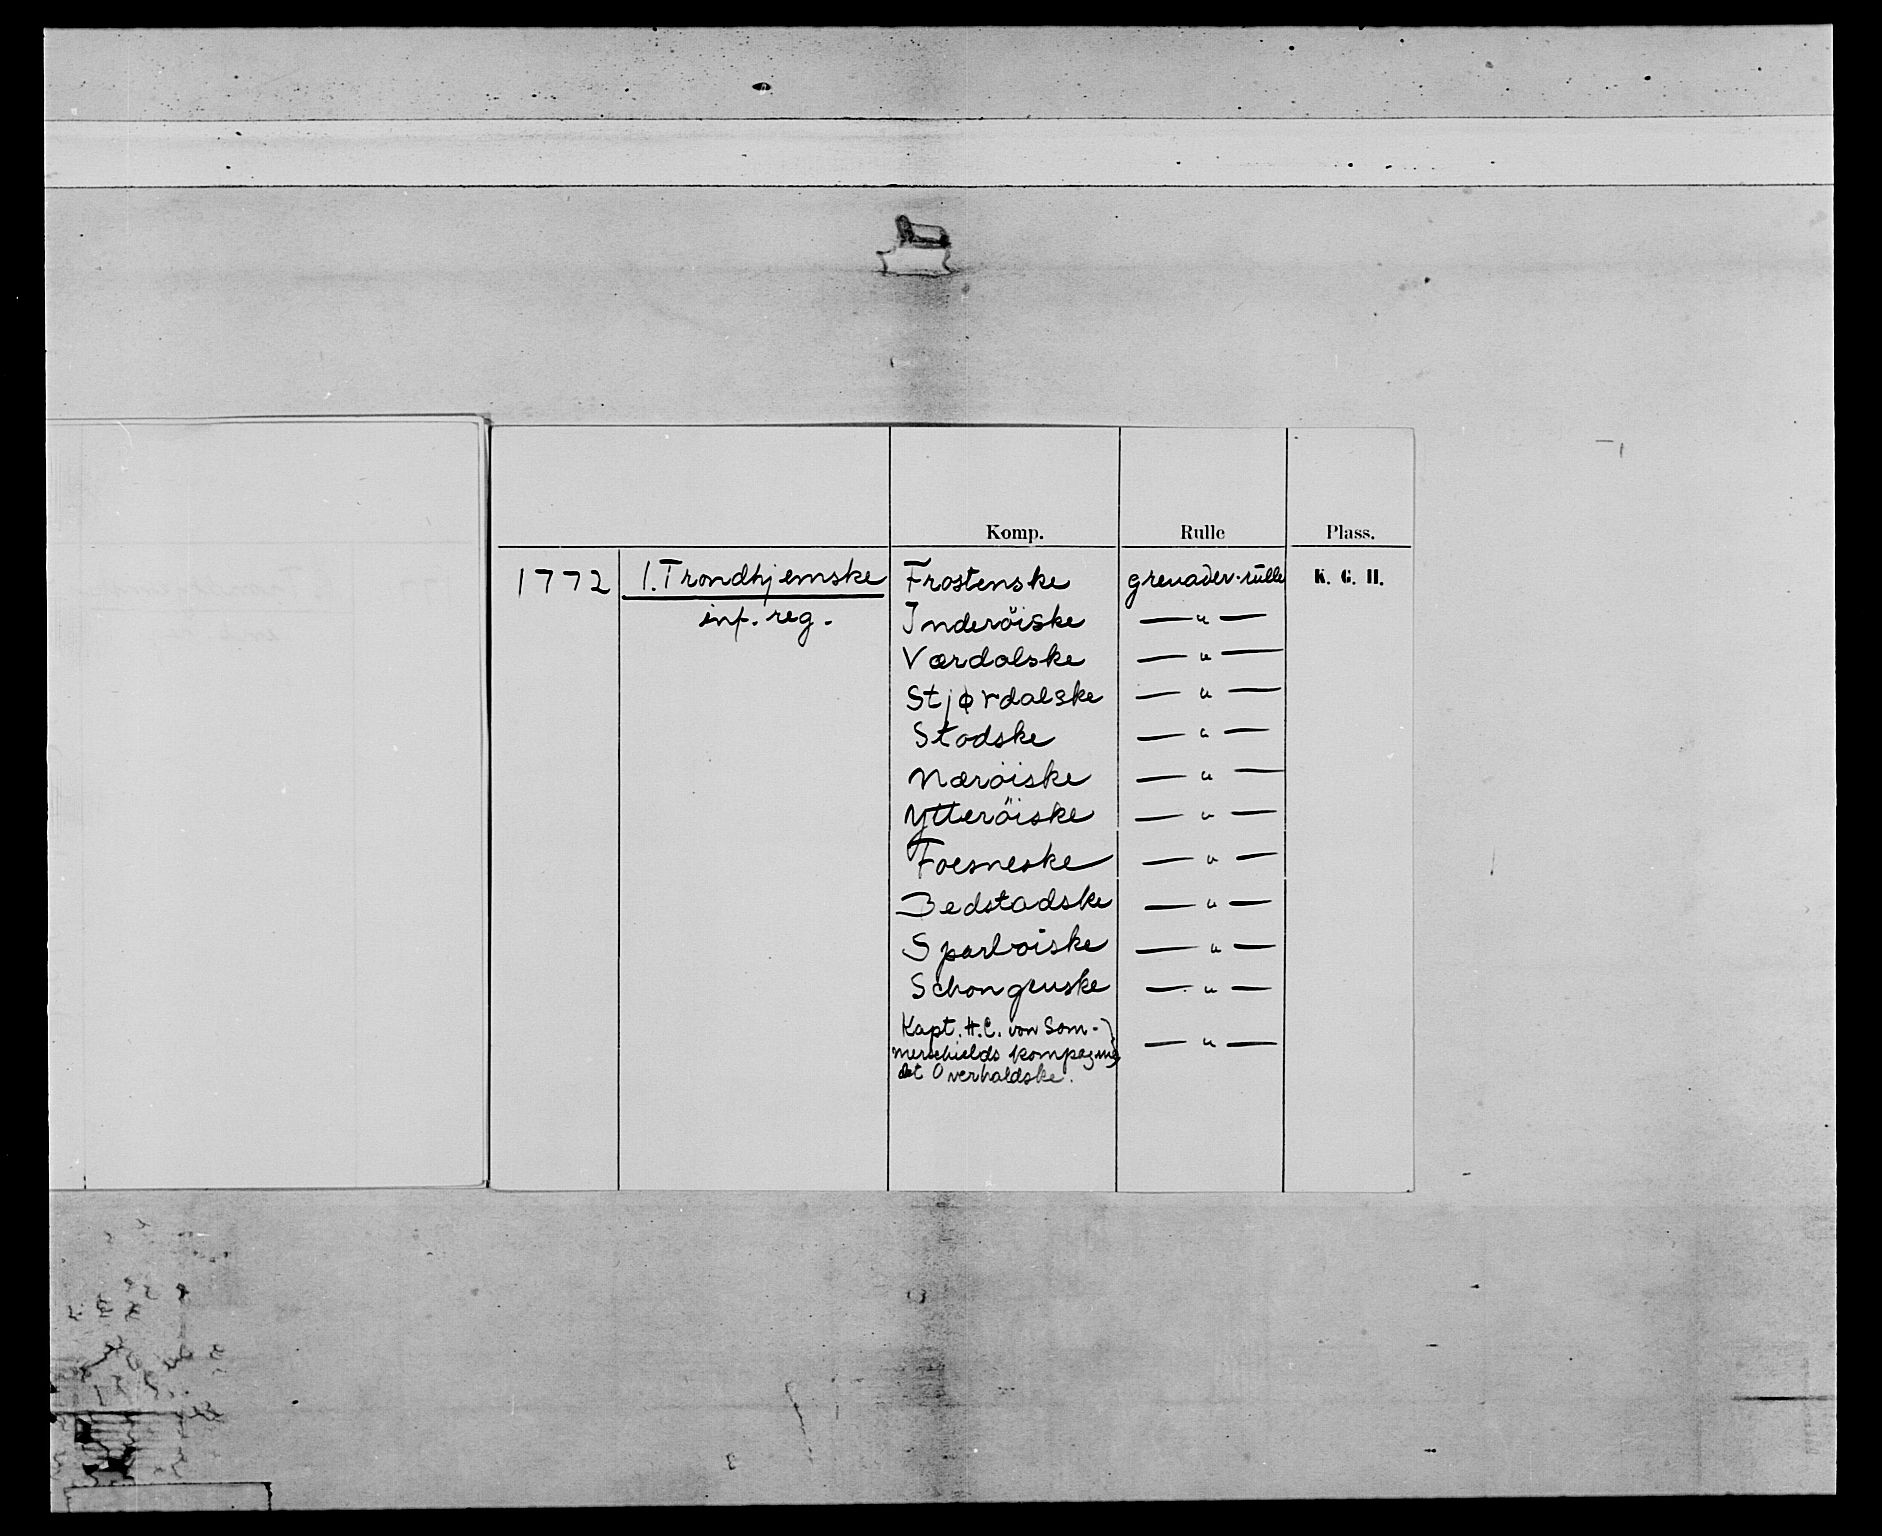 Komp. Rulle Plass.
1772 1. Trondhjemske Frostenske grenader-rulle K. G. H.
inf. reg. Inderöiske — " —
Værdalske — " —
Stjørdalske — " —
Stodske — " —
Nærøiske — " —
Ytteröiske — " —
Foesneske — " —
Bedstadske — " —
Sparboiske — " —
Schongnske — " —
Kapt. H.C. von Som-
merschields kompagni — " —
det Overhaldske.